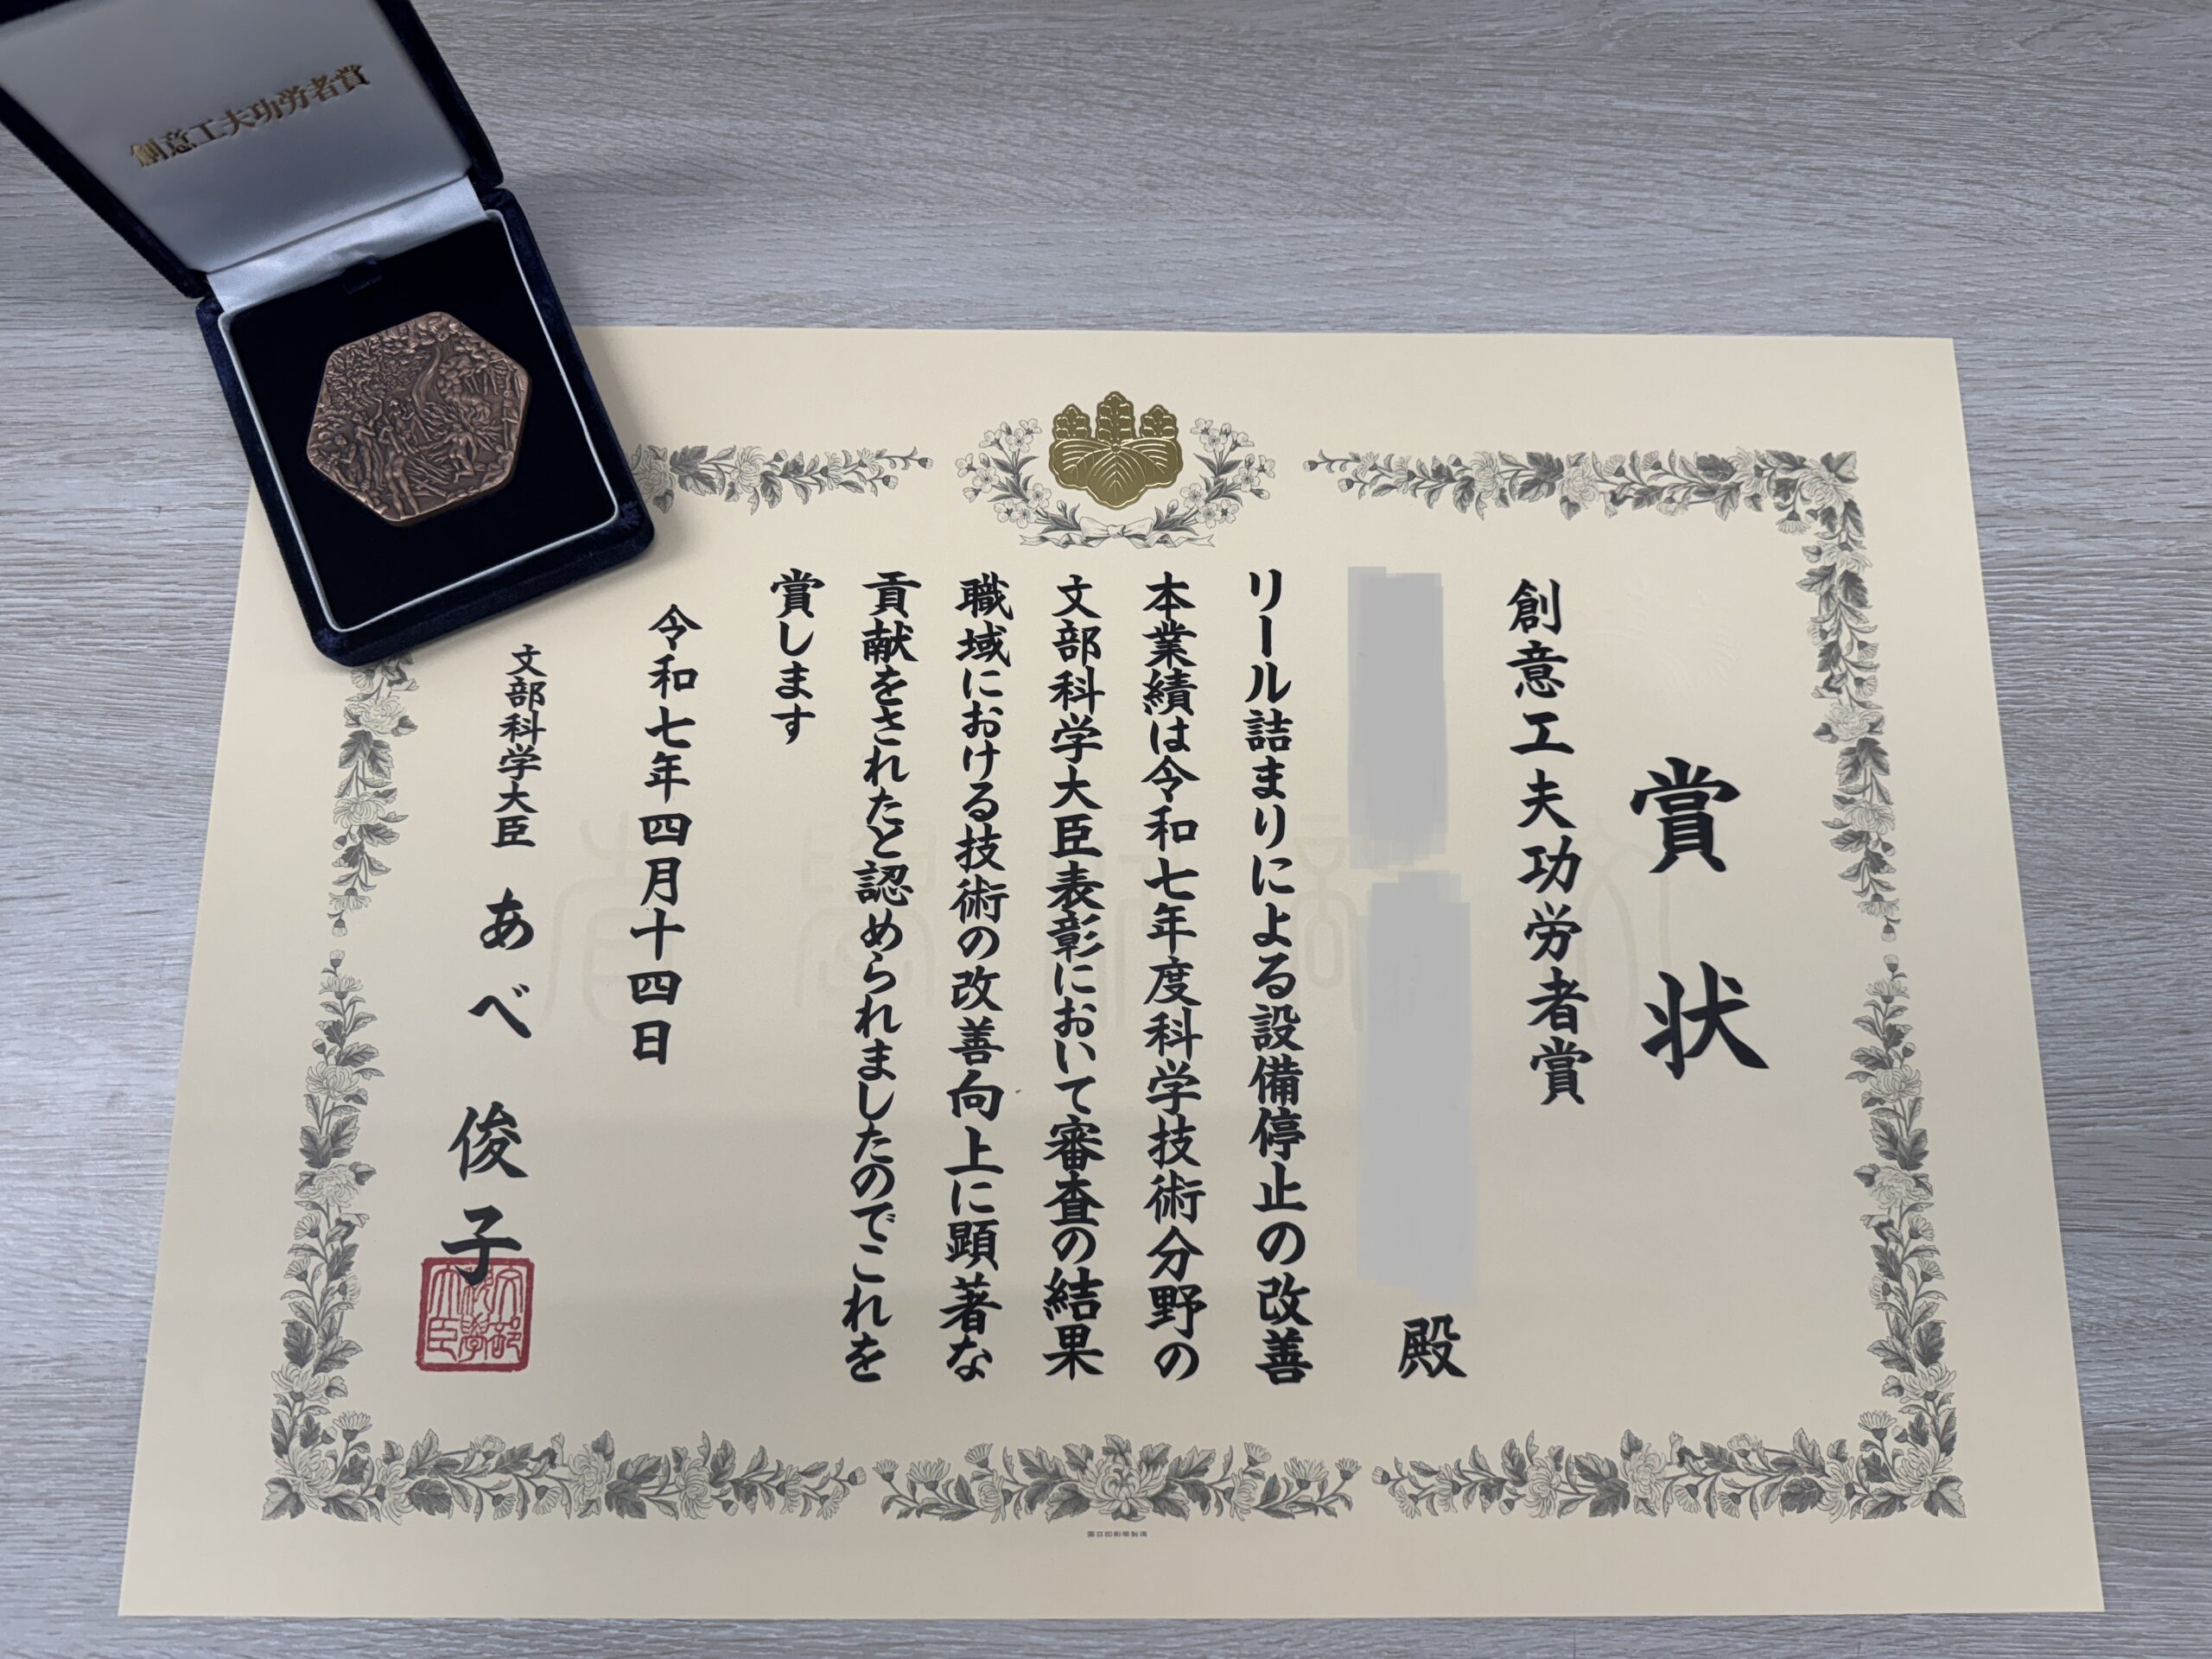 創意工夫功労者賞
賞状
創意工夫功労者賞
殿
リール詰まりによる設備停止の改善
本業績は令和七年度科学技術分野の
文部科学大臣表彰において審査の結果
職域における技術の改善向上に顕著な
貢献をされたと認められましたのでこれを
賞します
令和七年四月十四日
文部科学大臣 あべ 俊子